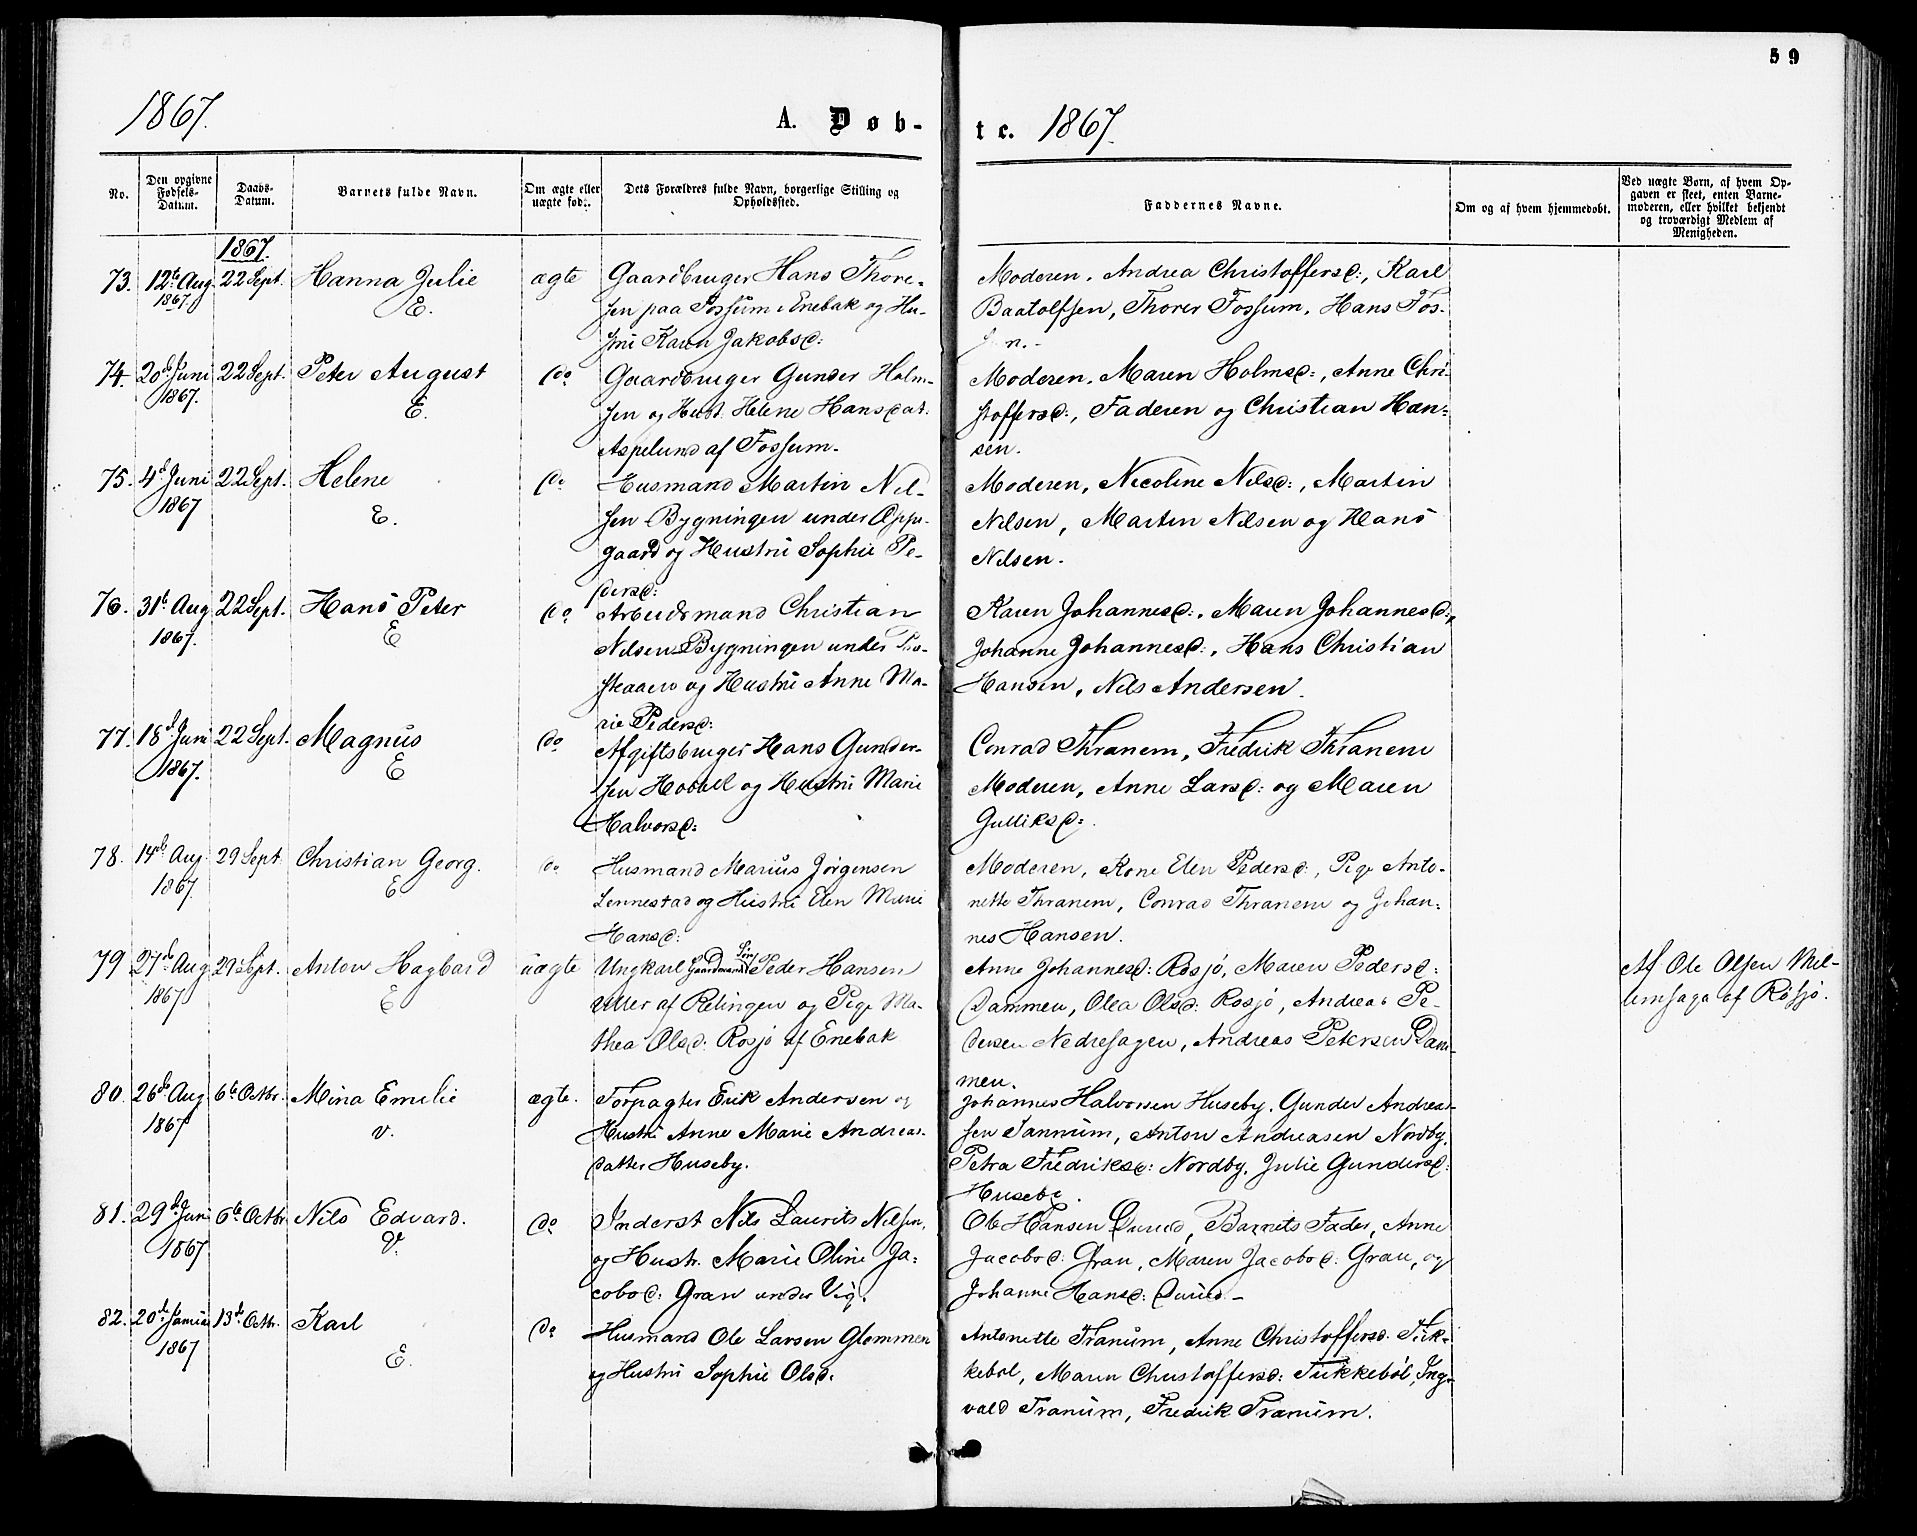 59
1867. A. Døb-
te. 1867.
No.
Den opgivne Fødsels-Datum.
Daabs-Datum.
Barnets fulde Navn.
Om ægte eller uægte fød.
Dets Forældres fulde Navn, borgerlige Stilling og Opholdssted.
Faddernes Navne.
Om og af hvem hjemmedøbt.
Ved uægte Børn, af hvem Op-
gaven er skeet, enten Barne-
moderen, eller hvilket bekjendt
og troværdigt Medlem af
Menigheden.
1867.
73. 12te Aug. 1867. 22 Sept. Hanna Julie E. ægte
Gaardbruger Hans Thore-
sen paa Fossum i Enebak og Hu-
stru Karen Jakobsd:
Moderen, Andrea Christoffersd:, Karl
Baatolfsen, Thorer Fossum, Hans Fos-
74. 20de Juni 1867. 22 Sept. Peter August E. do
Gaardbruger Gunder Holm-
sen og Hust. Helene Hansdat.
Aspelund af Fossum.
Moderen, Maren Holmsd:, Anne Chri-
stoffersd:, Faderen og Christian Han-
sen.
75. 4de Juni 1867 22 Sept. Helene E. do
Husmand Martin Nil-
sen Bygningen under Opp-
gaard og Hustru Sophie Pe-
dersd:
Moderen, Nicoline Nilsd:, Martin
Nilsen, Marten Nilsen og Hans
Nilsen.
76. 31te Aug 1867. 22 Sept. Hans Peter E do
Arbeidsmand Christian
Nilsen Bygningen under
og Hustru Anne Ma-
rie Pedersd:
Karen Johannesd:, Maren Johannesd:,
Johanne Johannesd:, Hans Christian
Hansen, Nils Andersen.
77. 18de Juni 1867. 22 Sept. Magnus E do
Afgiftsbruger Hans Gunder-
sen og Hustru Marie
Halvorsd:
Conrad Thranem, Fredrik Thranem
Moderen, Anne Larsd: og Maren
Gulliksd:.
78. 14de Aug 1867. 29 Sept. Christian Georg. E do
Husmand Marius Jørgensen
Lennestad og Hustru Elen Marie
Hansd:
Moderen, Kone Elen Pedersd:, Pige Anto-
nette Thranem, Conrad Thranem og Johan-
nes Hansen.
79 27de Aug 1867 29 Sept. Anton Hagbard E uægte
Ungkarl Gaardmands Søn Peder Hansen
af Relingen og Pige Ma-
thea Olsd: Rosjø af Enebak
Anne Johannesd: Rosjø, Maren Pedersd:
Dammen, Olea Olsd: Rosjø, Andreas Pe-
dersen Nedresagen, Andreas Petersen Dam-
men.
Af Ole Olsen Mel-
lemsaga af Røsjø.
80. 26de Aug 1867 6te Octbr. Mina Emilie v. ægte.
Forpagter Erik Andersen og
Hustru Anne Marie Andreas-
datter Huseby.
Johannes Halvorsen Huseby, Gunder Andrea-
sen Tannum, Anton Andreasen Nordby,
Petra Fredriksd: Nordby, Julie Gundersd:
Huseby.
81. 29de Juni 1867 6te Octbr Nils Edvard. V. do
Inderst Nils Laurits Nilsen,
og Hustr. Marie Oline Ja-
cobsd: Gran under Vig.
Ole Hansen Durud, Barnets Fader, Anne
Jacobsd: Gran, Maren Jacobsd: Gran, og
Johanne Hansd: Durud.
82. 20de 1867 13de Octbr. Karl E. do
Husmand Ole Larsen Glommen
og Hustru Sophie Olsd.
Antonette Tranum, Anne Christoffersd. Tik-
kebøl, Maren Christoffersd: Tikkebøl, Ing-
vald Tranum, Fredrik Tranum.